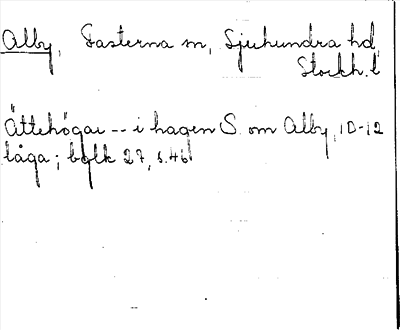 Alby, Fasterna sn, Sjuhundra hd
Stockh. l
Ättehögar -- i hagen S. om Alby, 10-12
låga; bglk 27, s. 46